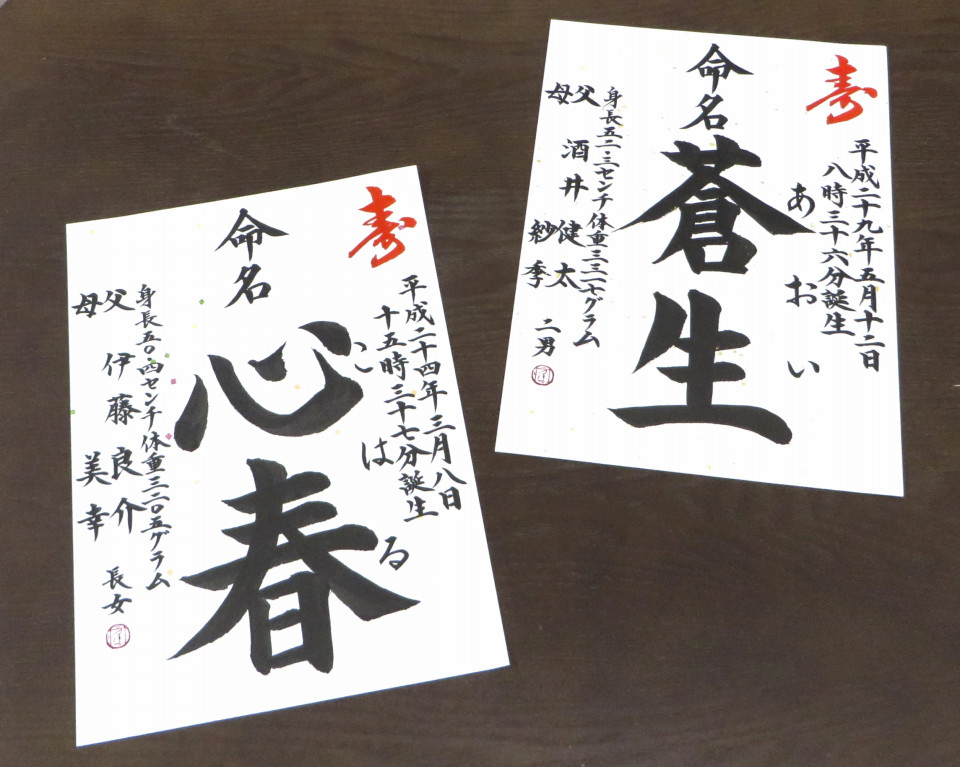 寿
平成二十四年三月八日
十五時三十七分誕生
命名
心春
こはる
身長五〇・四センチ体重三二〇五グラム
父 伊藤 良介
母 美幸
長女
寿
平成二十九年五月十二日
八時三十六分誕生
命名
蒼生
あおい
身長五二・三センチ体重三三一七グラム
父 酒井 健太
母 紗季
二男